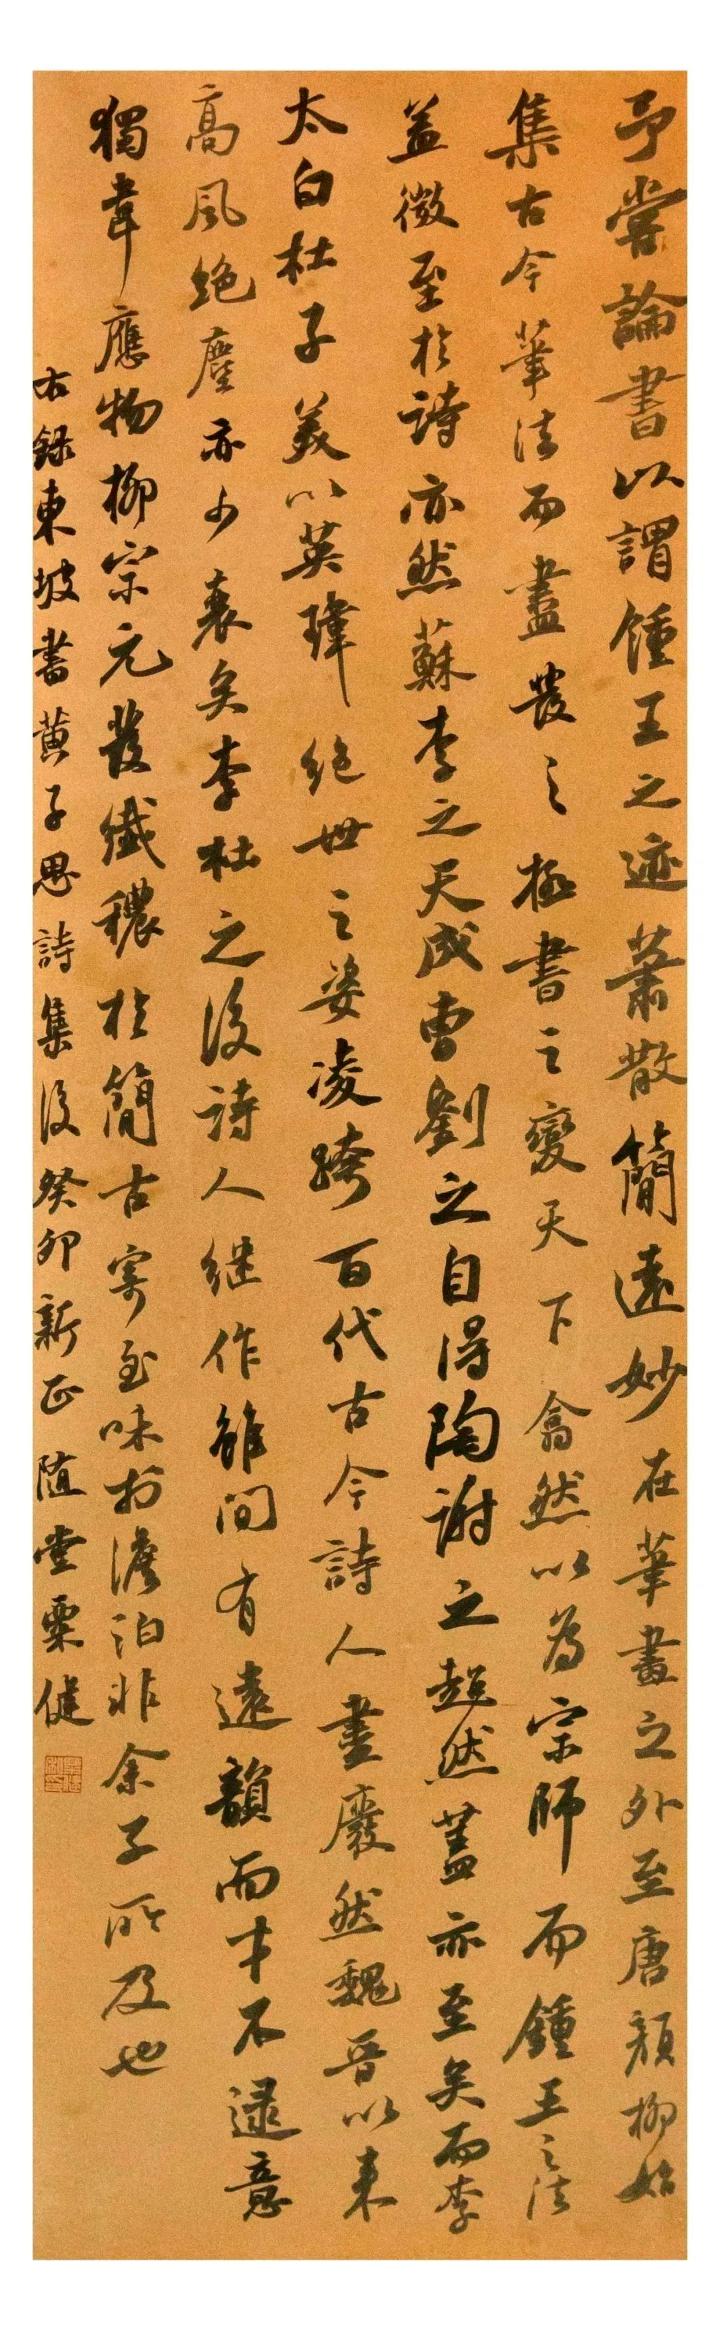 予嘗論書以謂鍾王之迹蕭散簡遠妙在筆畫之外至唐顏柳始
集古今筆法而盡發之極書之變天下翕然以為宗師而鍾王之法
益微至於詩亦然蘇李之天成曹劉之自得陶謝之超然蓋亦至矣而李
太白杜子美以英瑋絕世之姿凌跨百代古今詩人盡廢然魏晉以來
高風絕塵亦少衰矣李杜之後詩人繼作雖間有遠韻而才不逮意
獨韋應物柳宗元發纖穠於簡古寄至味於澹泊非余子所及也
右録東坡書黃子思詩集後癸卯新正隨堂栗健